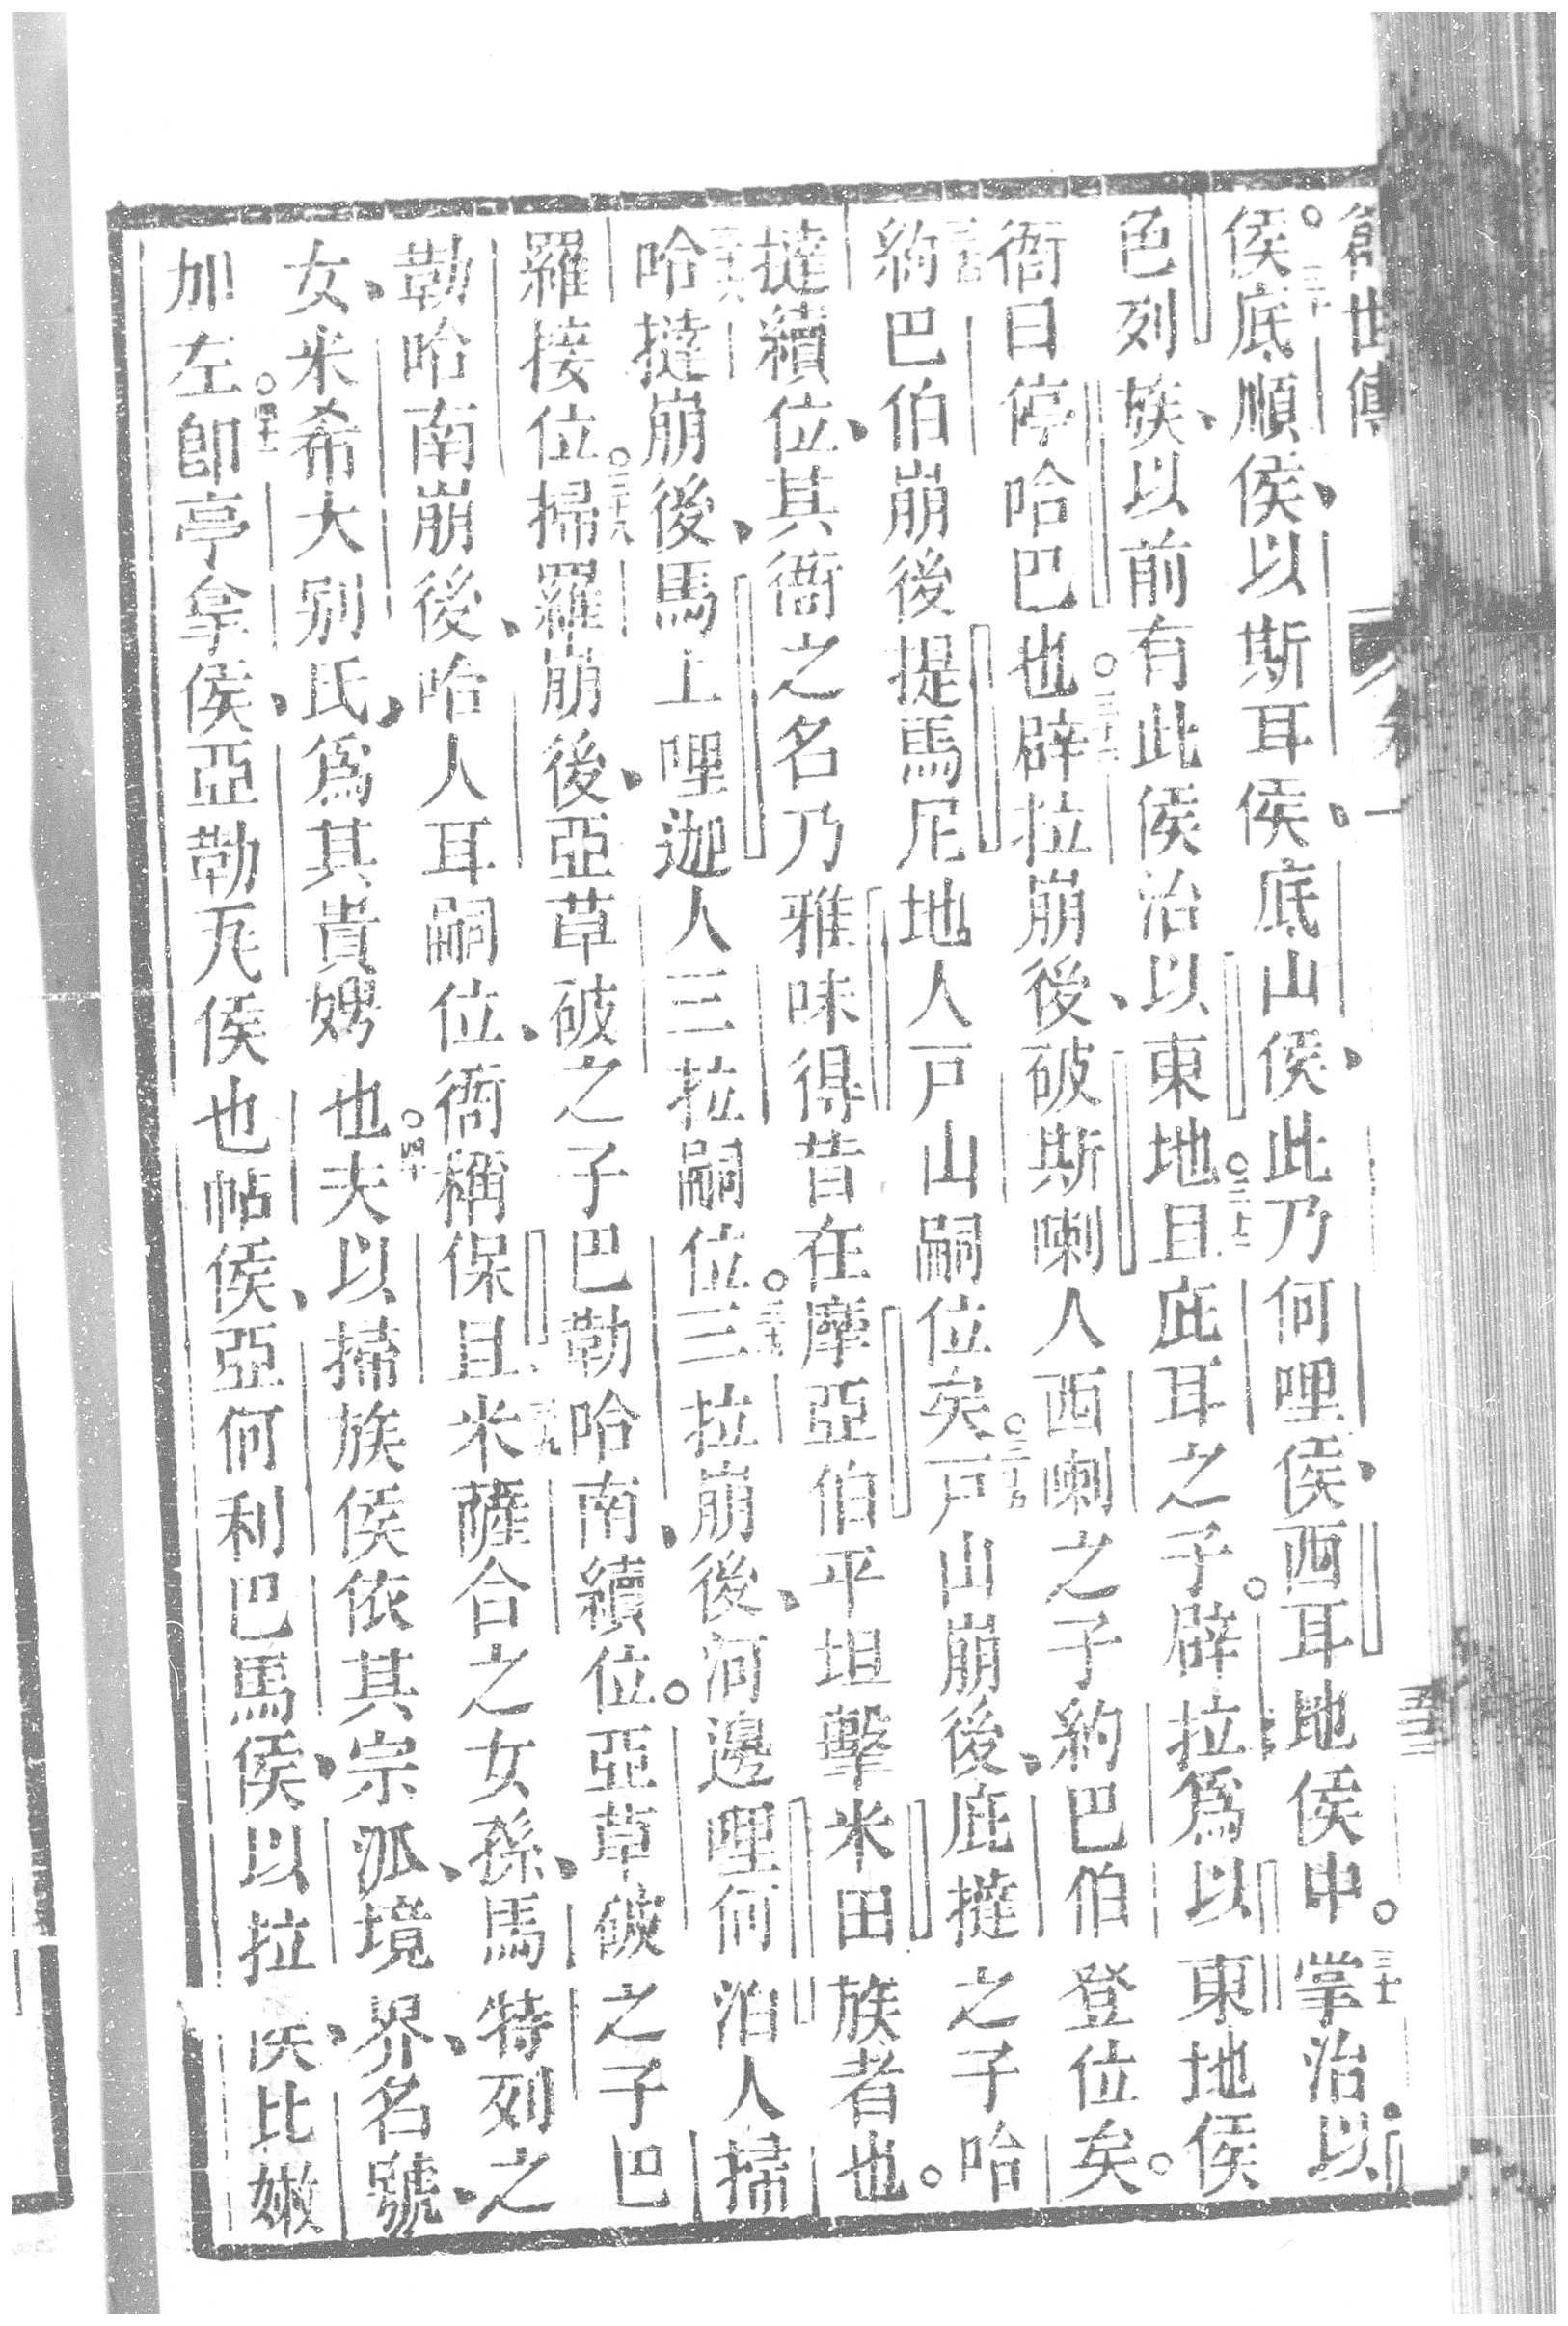 創世傳
侯○三十底順侯、以斯耳侯、底山侯、此乃何哩侯、西耳地侯中。三十一掌治以斯
色列族、以前有此侯治以東地○三十二且庇耳之子辟拉為以東地侯
衙曰停哈巴也○三十三辟拉崩後、破斯喇人西喇之子約巴伯登位矣。
三十四約巴伯崩後提馬尼地人戸山嗣位矣○三十五戸山崩後、庇撻之子哈
撻續位、其衙之名乃雅味得昔在摩亞伯平坦擊米田族者也。
三十六哈撻崩後、馬士哩迦人三拉嗣位○三十七三拉崩後、河邊哩何泊人掃
羅接位○三十八掃羅崩後、亞革破之子巴勒哈南續位。亞革破之子巴
勒哈南崩後、哈人耳嗣位、衙稱保且米薩合之女孫、馬特列之
女、米希大別氏、為其貴娚也○四十夫以掃族侯依其宗派、境界、名號、
加左○四十一即亭拿侯、亞勒瓦侯也帖侯、亞何利巴馬侯、以拉侯、比嫩